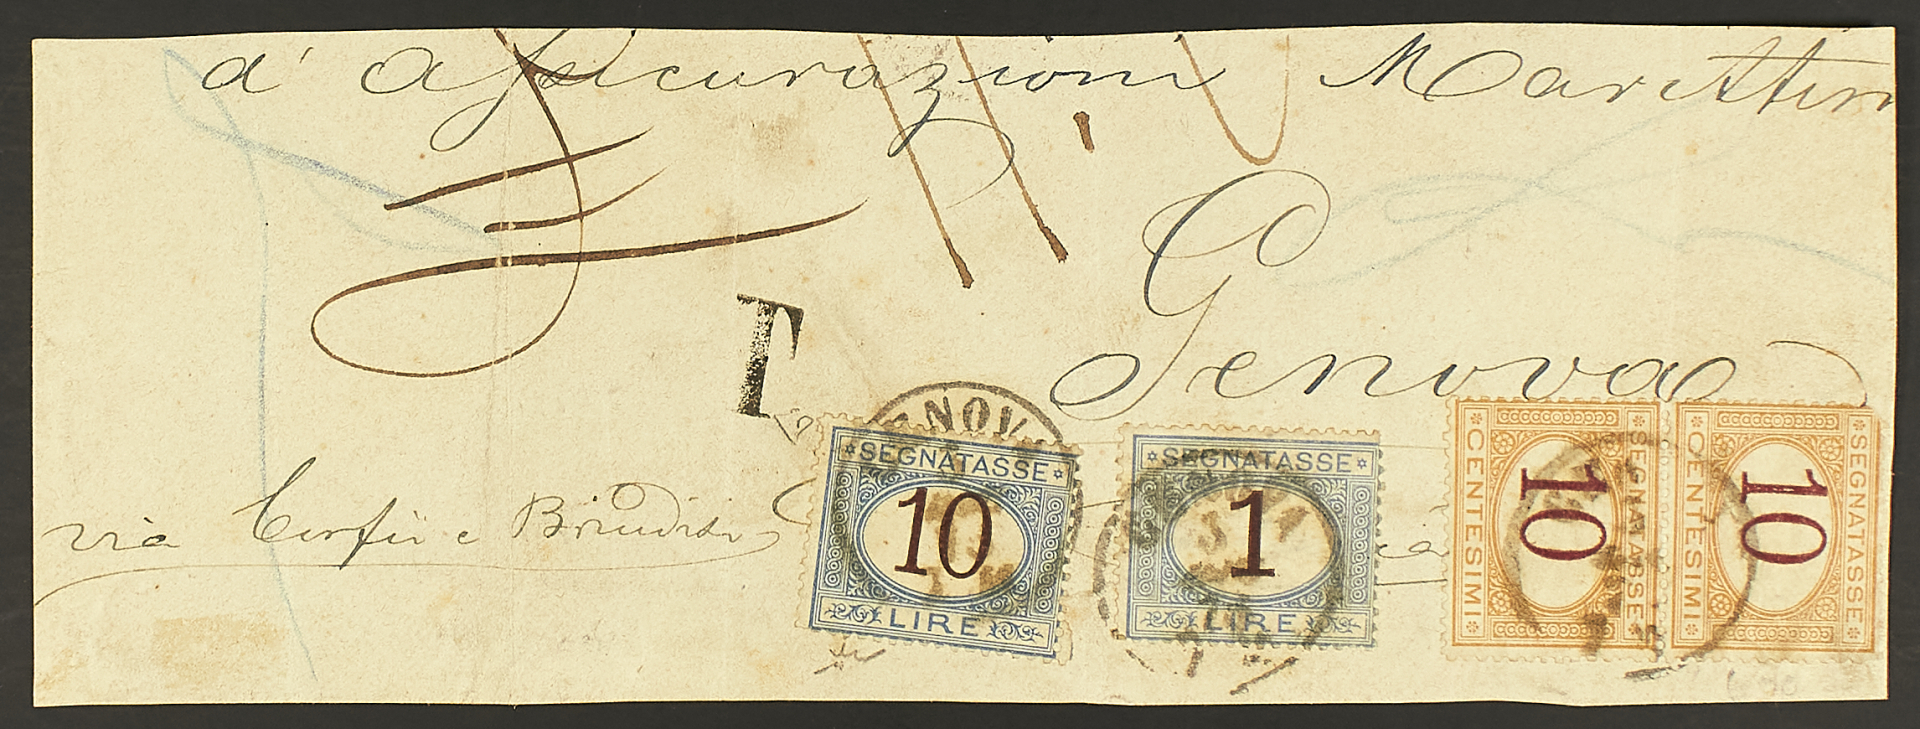 d' assicurazioni Marittim
Genova
T
via Corfù e Brindisi
GENOVA
SEGNATASSE
10
LIRE
SEGNATASSE
1
LIRE
SEGNATASSE
10
CENTESIMI
SEGNATASSE
10
CENTESIMI